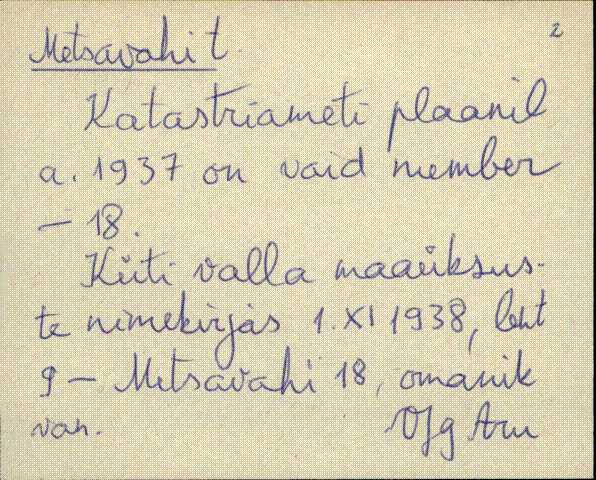 2
Metsavahi t.
Katastriameti plaanil
a. 1937 on vaid member
– 18.
Küti valla maaüksus-
te nimekirjas 1. XI 1938, leht
9 – Metsavahi 18, omanik